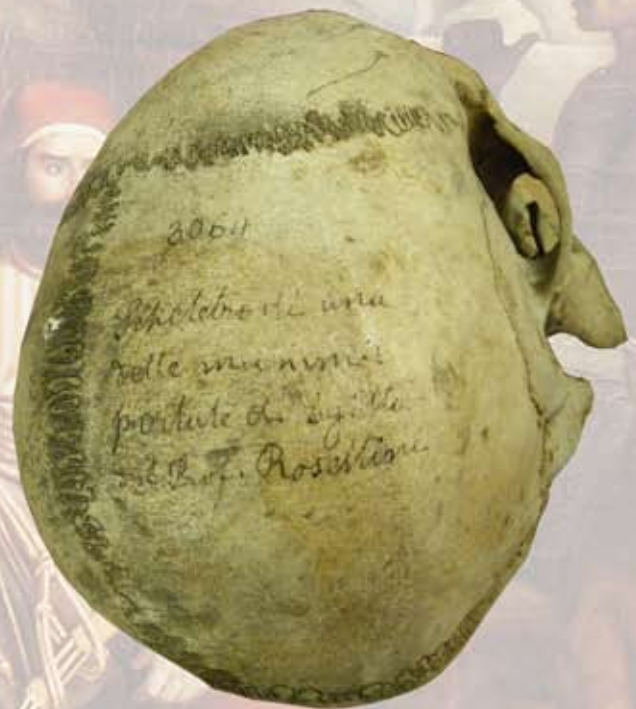 3064
Scheletro di una
delle mummie
portate di Egitto
dal Prof. Rosellini